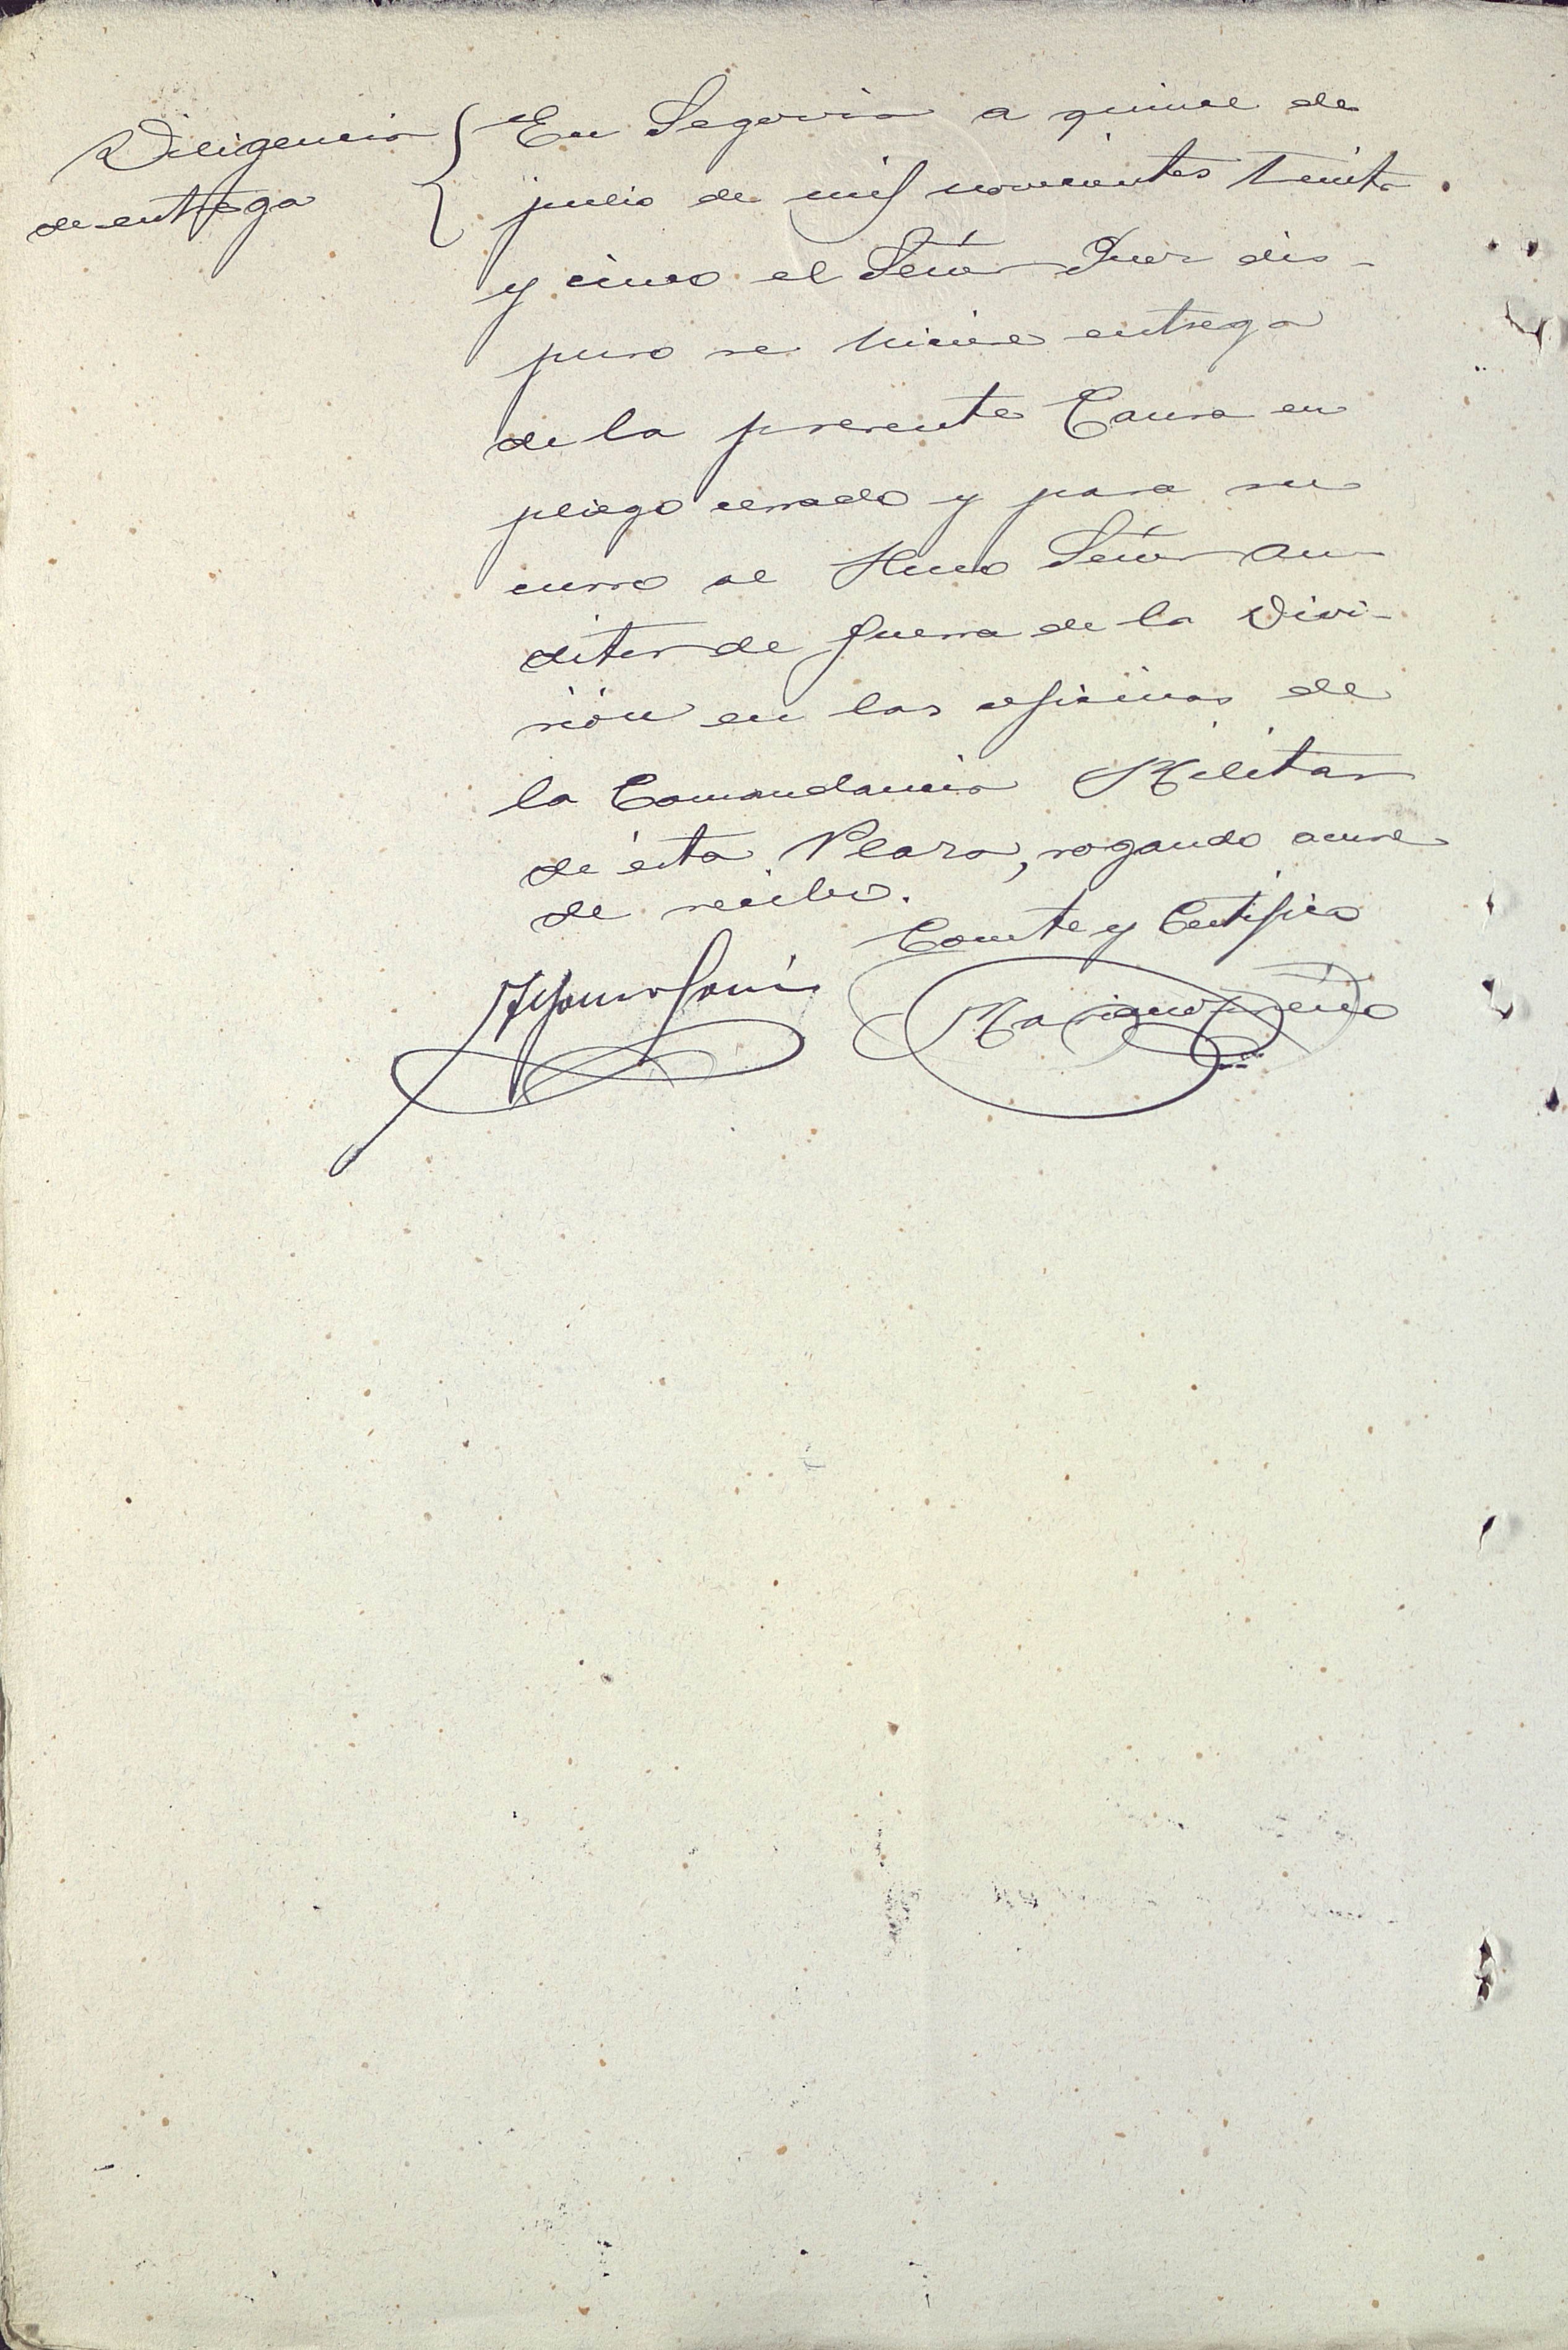 Diligencia
de entrega
En Segovia a quince de
julio de mil novecientos treinta
y cinco el Señor Juez dis-
puso se hiciese entrega
de la presente Causa en
pliego cerrado y para su
curso al Ilmo Señor Au-
ditor de Guerra de la Divi-
sión en las oficinas de
la Comandancia Militar
de ésta Plaza, rogando acuse
de recibo.
Conste y Certifico
Mariano